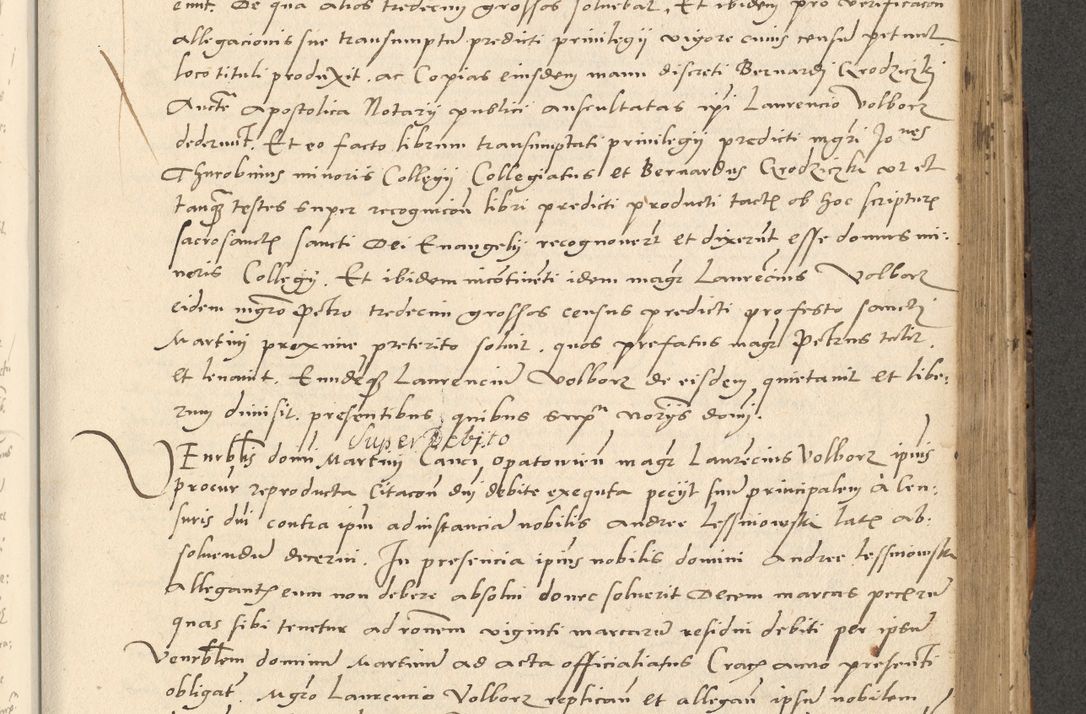 eunt. De qua alios tredecim grossos soluebat, Et ibidem pro verificacon
allegacionis sue transumptum predicti priuilegii vigore cuius censum petunt
loco tituli produxit. ac Copias eiusdem manu discreti Bernardi Grodziczki
Aucte Apostolica Notarii publici auscultatas ipi Laurencio Volborz
dederunt. Et eo facto librum transumptati priuilegii predicti mgri Joanes
Thurobinus minoris Collegii Collegiatus et Bernardus Grodziczki vt et
tanq testes super recognicion libri predicti producti tactis ob hoc scripturis
sacrosanctis sancti Dei Euangelii recognouert et dixerunt esse domus mi-
noris Collegii. Et ibidem incontinenti idem magr Laurencius Volborz
eidem mgro Petro tredecim grossos census predicti pro festo sancti
Martini proxime preterito soluit. quos prefatus magr Petrus tulit.
et leuauit. Eundeq Laurencium Volborz de eisdem quietauit et libe-
rum dimisit. presentibus quibus supra notariis domi.
Super Debito
Venrblis domi Martini Canci Opatowien magr Laurencius Volborz ipius
procur reproducta Citacon dni debite exequta peciit suum principalem a cen-
suris dni contra ipm ad instanciam nobilis Andree Lessniowski latis ab-
soluendum decerni. In presencia ipius nobilis domini Andree Lessniowski
allegantis eum non debere absolui donec soluerit Decem marcas pecunarum
quas sibi tenetur ad ronem viginti marcarum residui debiti per ipsum
Venrblem dominum Martinum ad acta officialiatus Crac anno presenti
obligat. Mgro Laurencio Volborz replican et allegan ipsum nobilem